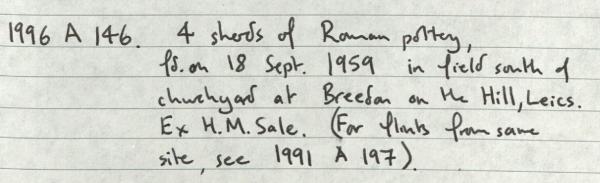 1996 A 146. 4 sherds of Roman pottery,
fd. on 18 Sept. 1959 in field south of
churchyard at Breedon on the Hill, Leics.
Ex H.M. Sale. (For flints from same
site, see 1991 A 197).